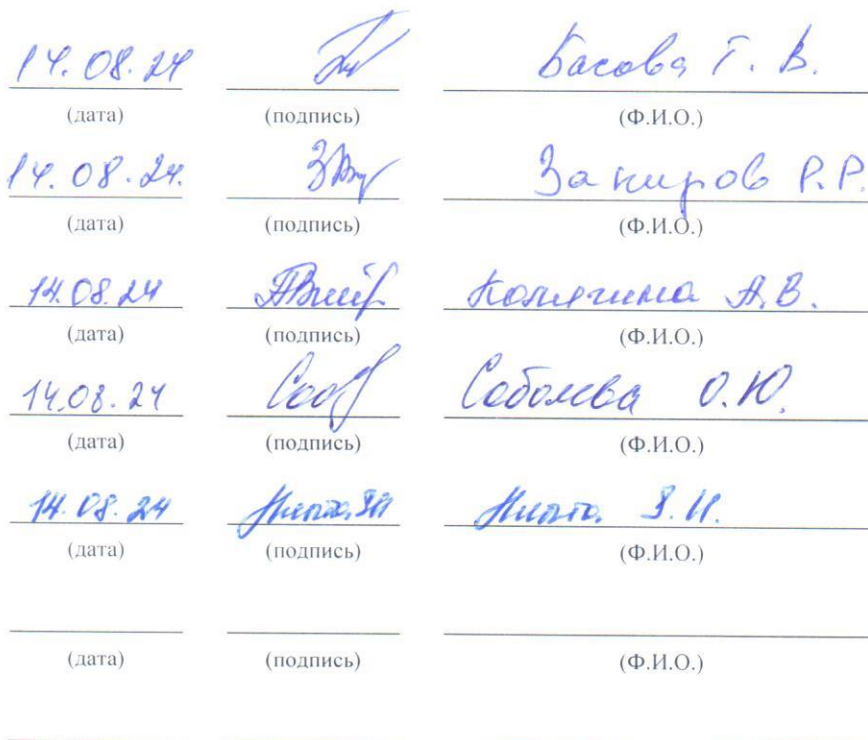 14.08.24 Басова Т. В.
(дата) (подпись) (Ф.И.О.)
14.08.24. Закиров Р.Р.
(дата) (подпись) (Ф.И.О.)
14.08.24 А.В.
(дата) (подпись) (Ф.И.О.)
14.08.24 Соболева О.Ю.
(дата) (подпись) (Ф.И.О.)
14.08.24
(дата) (подпись) (Ф.И.О.)
(дата) (подпись) (Ф.И.О.)